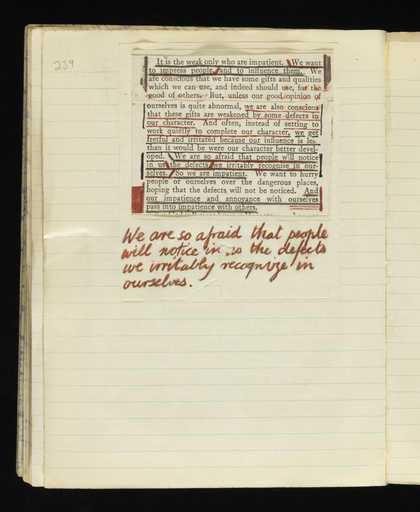 239
It is the weak only who are impatient. We want
to impress people and to influence them. We
are conscious that we have some gifts and qualities
which we can use, and indeed should use, for the
good of others. But, unless our good opinion of
ourselves is quite abnormal, we are also conscious
that these gifts are weakened by some defects in
our character. And often, instead of setting to
work quietly to complete our character, we get
fretful and irritated because our influence is less
than it would be were our character better devel-
oped. We are so afraid that people will notice
in us the defects we irritably recognise in our-
selves. So we are impatient. We want to hurry
people or ourselves over the dangerous places,
hoping that the defects will not be noticed. And
our impatience and annoyance with ourselves
pass into impatience with others.
We are so afraid that people
will notice in us the defects
we irritably recognize in
ourselves.